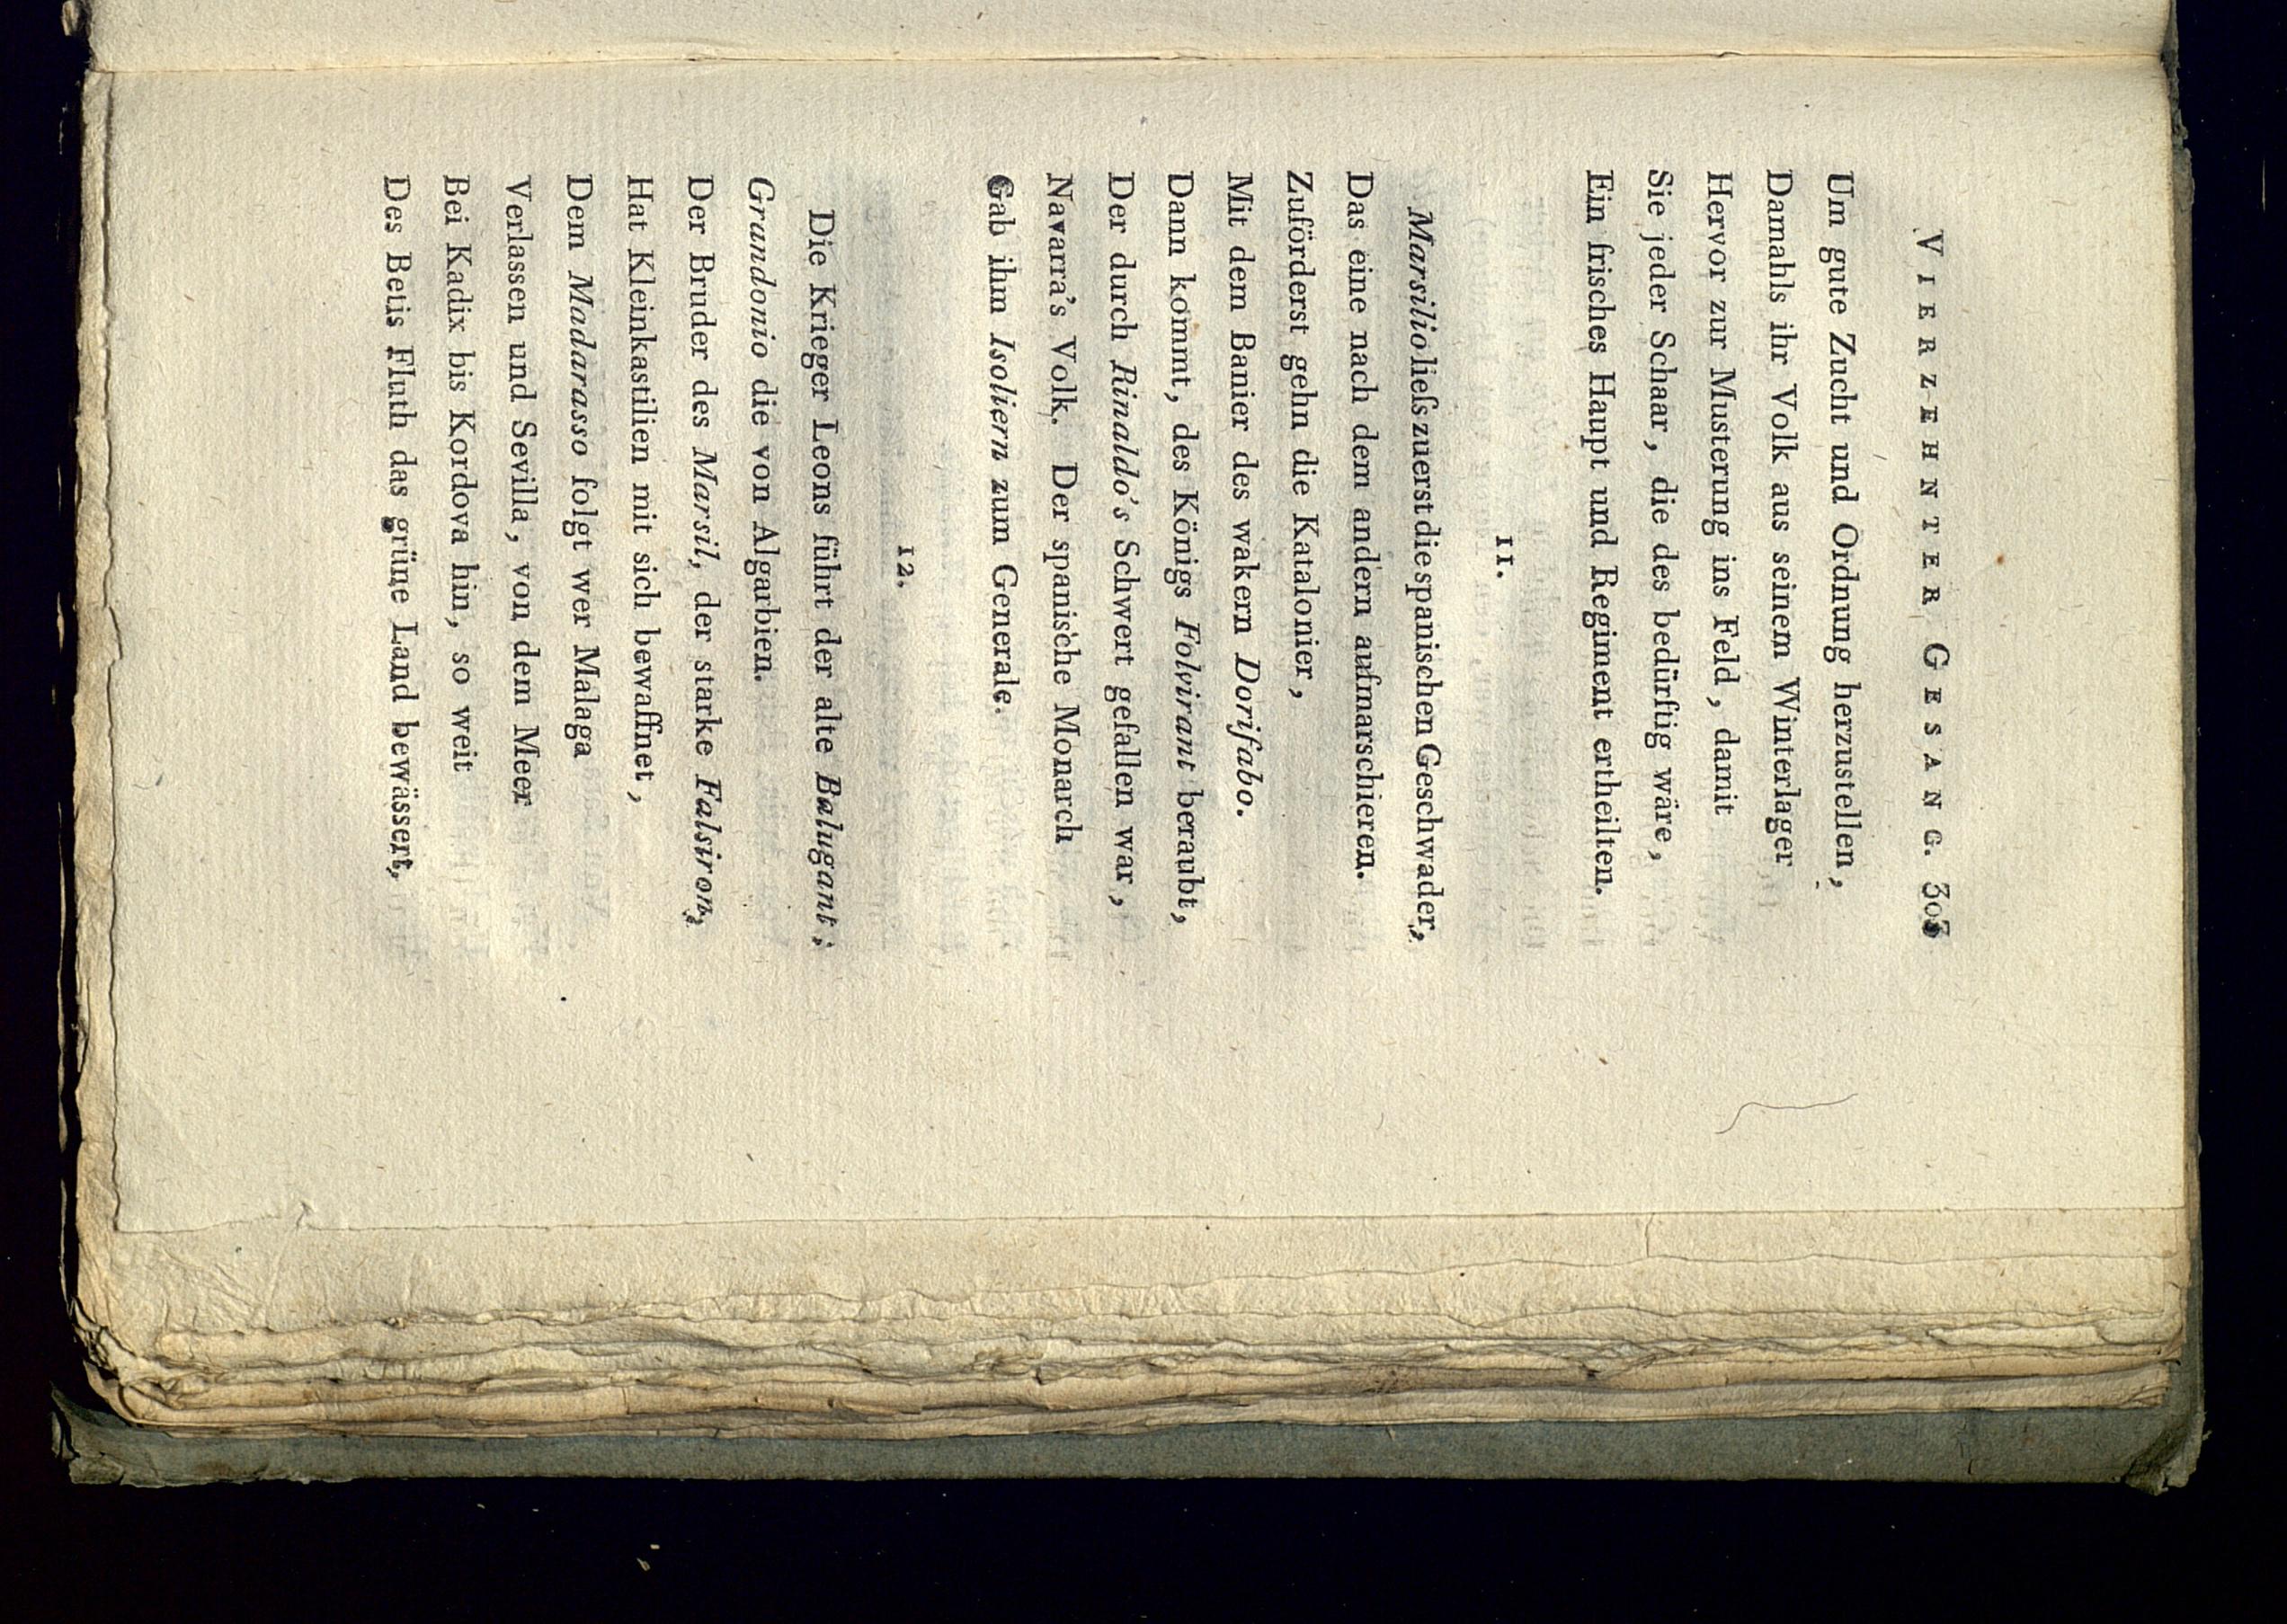 VIERZEHNTER GESANG. 303
Um gute Zucht und Ordnung herzustellen,
Damahls ihr Volk aus seinem Winterlager
Hervor zur Musterung ins Feld, damit
Sie jeder Schaar, die des bedürftig wäre,
Ein frisches Haupt und Regiment ertheilten.
11.
Marsilio ließ zuerst die spanischen Geschwader,
Das eine nach dem andern aufmarschieren.
Zuförderst gehn die Katalonier,
Mit dem Banier des wakern Dorifabo.
Dann kommt, des Königs Folvirant beraubt,
Der durch Rinaldo's Schwert gefallen war,
Navarra's Volk. Der spanische Monarch
Gab ihm Isoliern zum Generale.
12.
Die Krieger Leons führt der alte Balugant;
Grandonio die von Algarbien.
Der Bruder des Marsil, der starke Falsiron,
Hat Kleinkastilien mit sich bewaffnet,
Dem Madarasso folgt wer Malaga
Verlassen und Sevilla, von dem Meer
Bei Kadix bis Kordova hin, so weit
Des Betis Fluth das grüne Land bewässert,